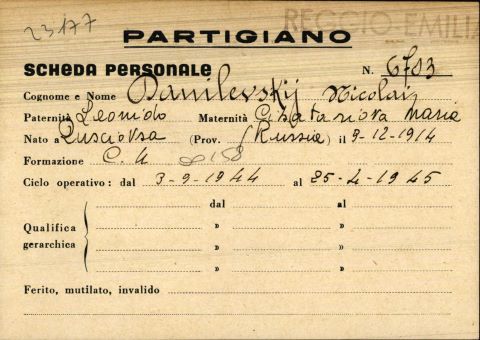 23177
REGGIO EMILIA
PARTIGIANO
SCHEDA PERSONALE N. 6783
Cognome e Nome Danilevskij Nicolai
Paternità Leonido Maternità Maria
Nato a (Prov. Russia) il 9-12-1914
Formazione C. U
Ciclo operativo: dal 3-9-1944 al 25-4-1945
dal al
Qualifica gerarchica » »
» »
» »
Ferito, mutilato, invalido